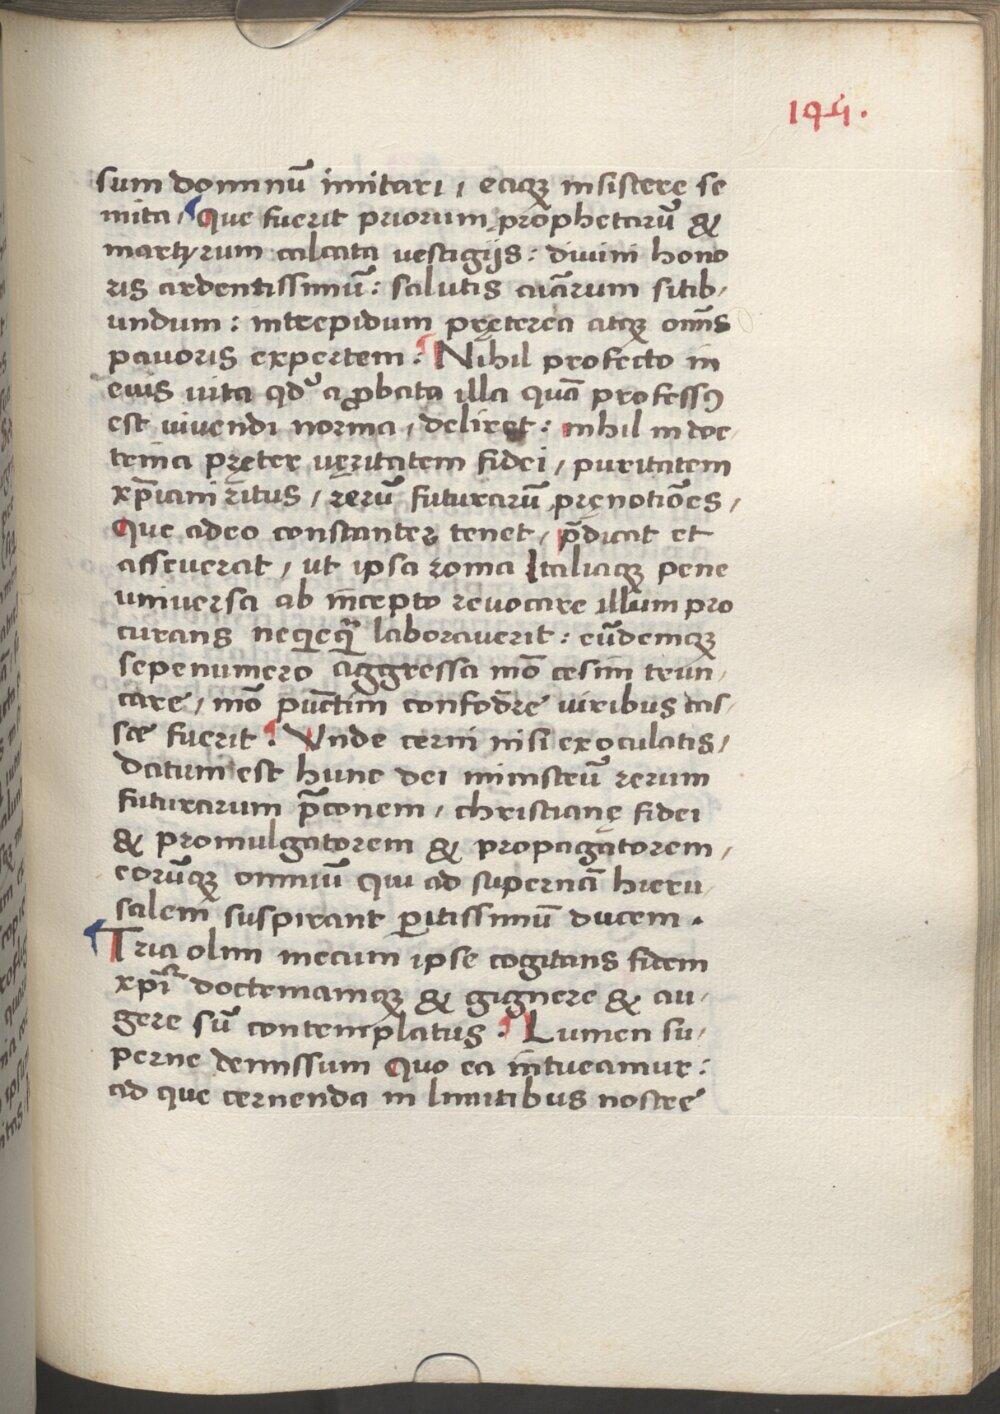 194.
sum dominū imitari, eaqꝫ insistere se
mita, Que fuerit priorum prophetarū &
martyrum calcata vestigijs: divini hono
ris ardentissimū: salutis aīarum sitib,
undum: intrepidum pręterea atqꝫ omīs
pavoris expertem: Nihil profecto in
eius vita qd̾ a ꝓbata illa quā professꝰ
est vivendi norma, deliret: nihil in doc,
trina pręter vęritatem fidei, puritatem
xp̄iani ritus, rerū futurarū pręnotiōes,
Que adeo constanter tenet, p̄dicat et
asseverat, ut ipsa roma Italiaqꝫ pene
universa ab incepto revocare illum pro
curans neqͥeqͣ laboraverit: eūdemqꝫ
sepenumero aggressa mō cesim trun,
care, mō pūctim confodēre viribus cas,
sæ fuerit: Unde cerni nisi exoculatis,
datum est hunc dei ministrū rerum
futurarum p̄conem, christianę fidei
& promulgatorem & propagatorem,
eorūqꝫ omniū qui ad supernā hieru,
salem suspirant ꝑitissimū ducem.
Tria olim mecum ipse cogitans fidem
xp̄i doctrinamqꝫ & gignere & au,
gere sū contemplatus: Lumen su,
perne demissum Quo ea intueamur:
ad que cernenda in limitibus nostre